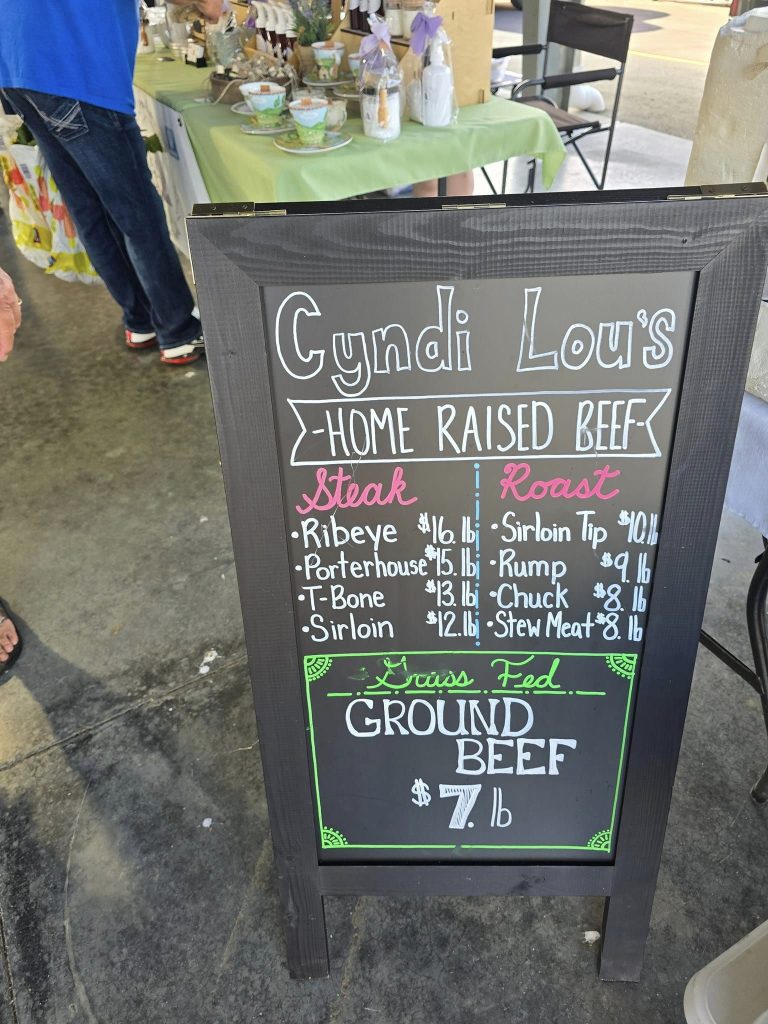 Cyndi Lou's
-HOME RAISED BEEF-
Steak
•Ribeye $16. lb
•Porterhouse $15. lb
•T-Bone $13. lb
•Sirloin $12. lb
Roast
•Sirloin Tip $10. lb
•Rump $9. lb
•Chuck $8. lb
•Stew Meat $8. lb
Grass Fed
GROUND
BEEF
$7. lb